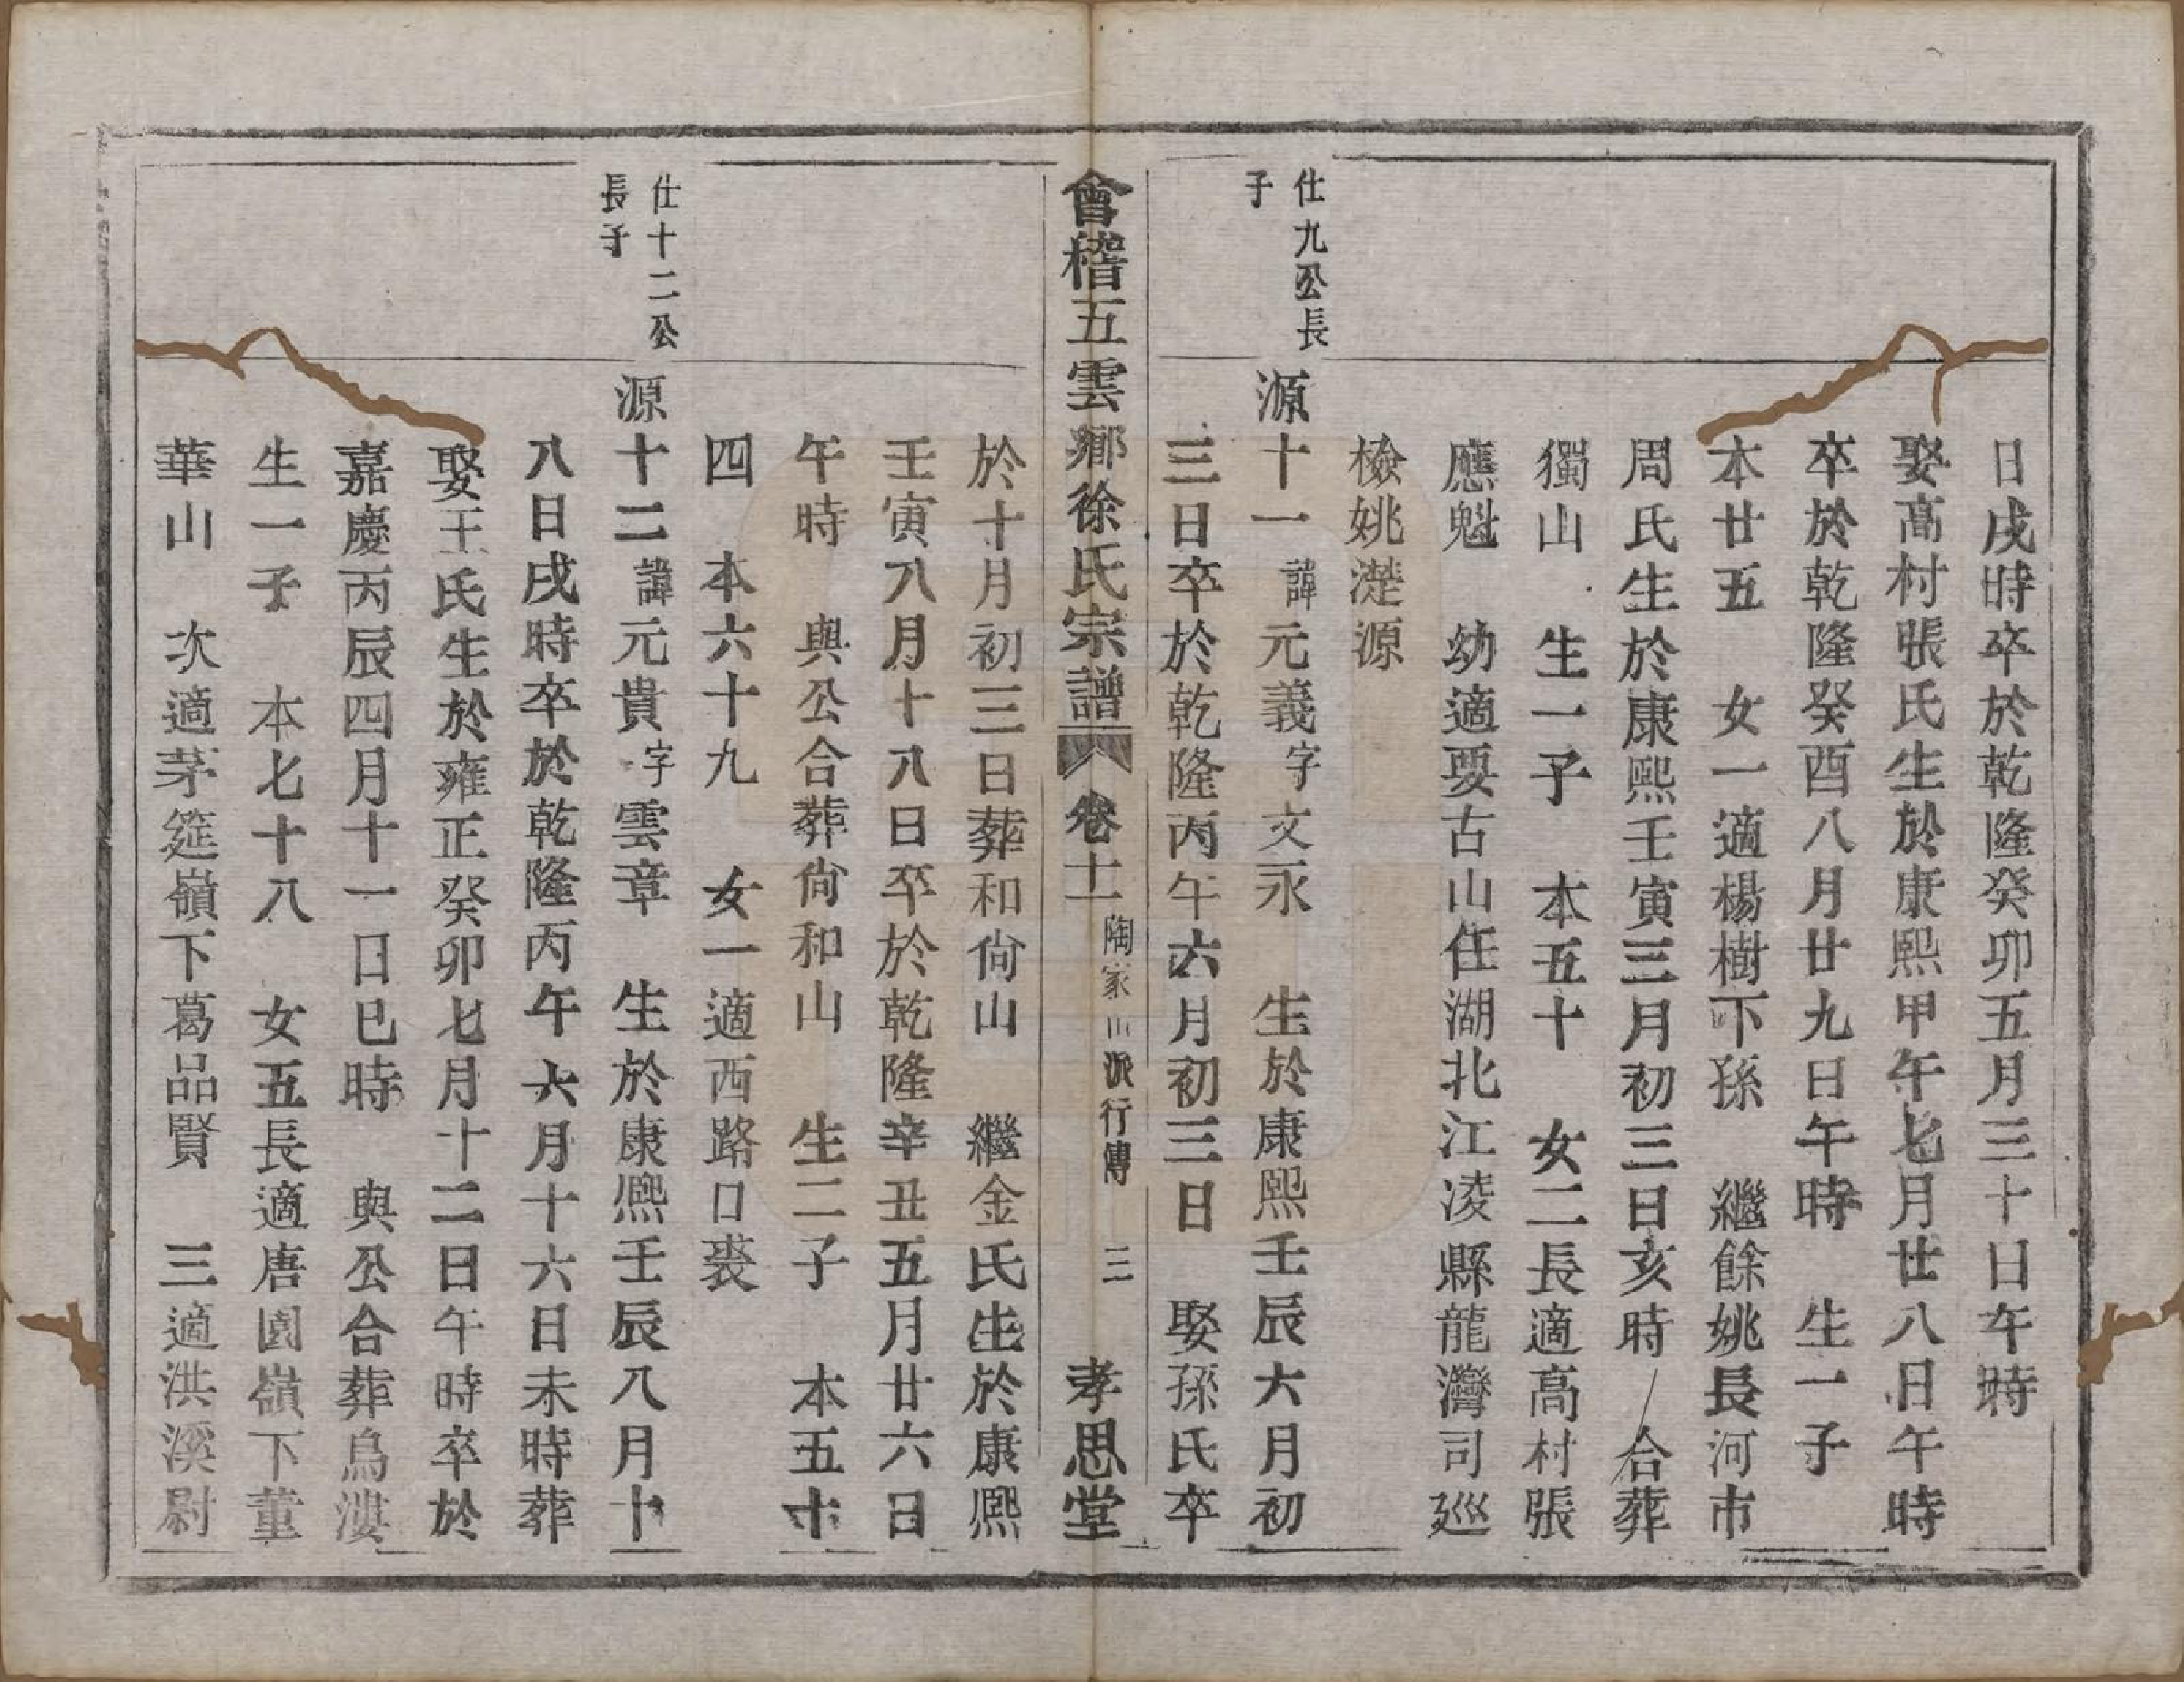 日戌時卒於乾隆癸卯五月三十日午時
娶高村張氏生於康熙甲午七月廿八日午時
卒於乾隆癸酉八月廿九日午時　生一子
本廿五　女一適楊樹下孫　繼餘姚長河市
周氏生於康熙壬寅三月初三日亥時　合葬
獨山　生一子　本五十　女二長適高村張
應魁　幼適要古山任湖北江凌縣龍灣司廵
檢姚漄源
仕九公長
子
源十一諱元義字文永　生於康熙壬辰六月初
三日卒於乾隆丙午六月初三日　娶孫氏卒
會稽五雲鄉徐氏宗譜　卷十一　陶家山派行傳　三　孝思堂
於十月初三日葬和尙山　繼金氏生於康熙
壬寅八月十八日卒於乾隆辛丑五月廿六日
午時　與公合葬尙和山　生二子　本五十
四　本六十九　女一適西路口裘
仕十二公
長子
源十二諱元貴字雲章　生於康熙壬辰八月十
八日戌時卒於乾隆丙午六月十六日未時葬
娶王氏生於雍正癸卯七月十二日午時卒於
嘉慶丙辰四月十一日巳時　與公合葬烏漊
生一子　本七十八　女五長適唐園嶺下董
華山　次適茅筵嶺下葛品賢　三適洪溪尉